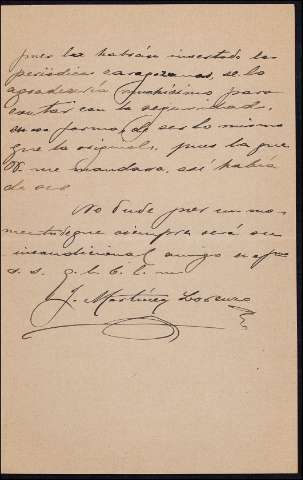 pues la habrán insertado los
periódicos zaragozanos, se lo
agradecería muchísimo para
contar con la seguridad,
en su forma, de ser lo mismo
que la original, pues la que
V. me mandara, así había
de ser
No dude por un mo-
mento que siempre será su
incondicional amigo
s. s. q. l. b. l. m.
J. Martínez Lorenzo